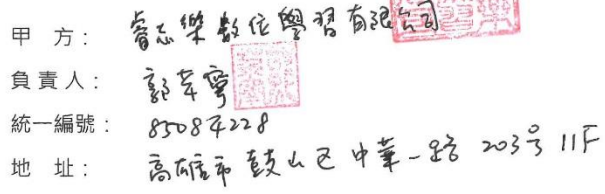 甲 方： 睿志樂數位學習有限公司
負 責 人： 郭芊寗
統一編號： 85084228
地 址： 高雄市鼓山区中華一路 203号 11F